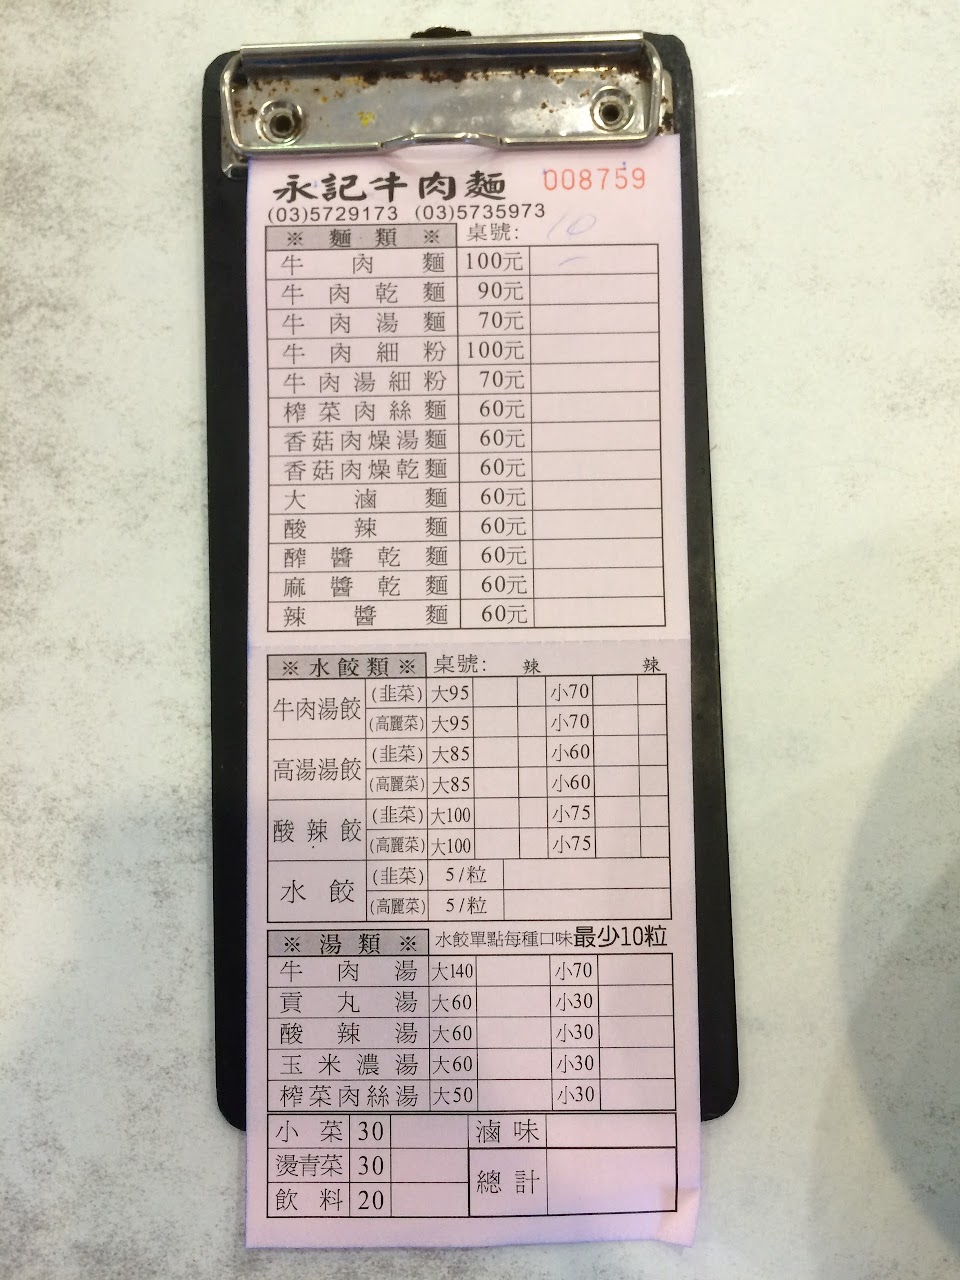 永記牛肉麵 008759
(03)5729173 (03)5735973
※ 麵類 ※ 桌號: 10
牛肉麵 100元
牛肉乾麵 90元
牛肉湯麵 70元
牛肉細粉 100元
牛肉湯細粉 70元
榨菜肉絲麵 60元
香菇肉燥湯麵 60元
香菇肉燥乾麵 60元
大滷麵 60元
酸辣麵 60元
醡醬乾麵 60元
麻醬乾麵 60元
辣醬麵 60元
※水餃類※ 桌號: 辣 辣
牛肉湯餃 (韭菜) 大95 小70
(高麗菜) 大95 小70
高湯湯餃 (韭菜) 大85 小60
(高麗菜) 大85 小60
酸辣餃 (韭菜) 大100 小75
(高麗菜) 大100 小75
水餃 (韭菜) 5/粒
(高麗菜) 5/粒
※ 湯類 ※ 水餃單點每種口味最少10粒
牛肉湯 大140 小70
貢丸湯 大60 小30
酸辣湯 大60 小30
玉米濃湯 大60 小30
榨菜肉絲湯 大50 小30
小菜 30 滷味
燙青菜 30 總計
飲料 20